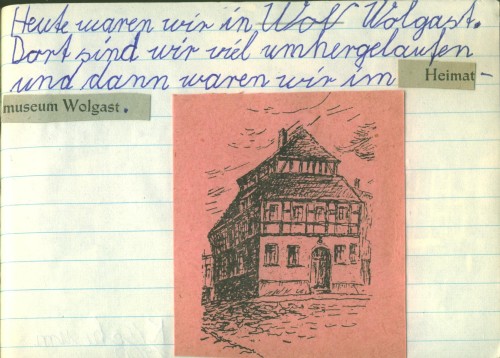 Heute waren wir in Wolf Wolgast.
Dort sind wir viel umhergelaufen
und dann waren wir im Heimat-
museum Wolgast.